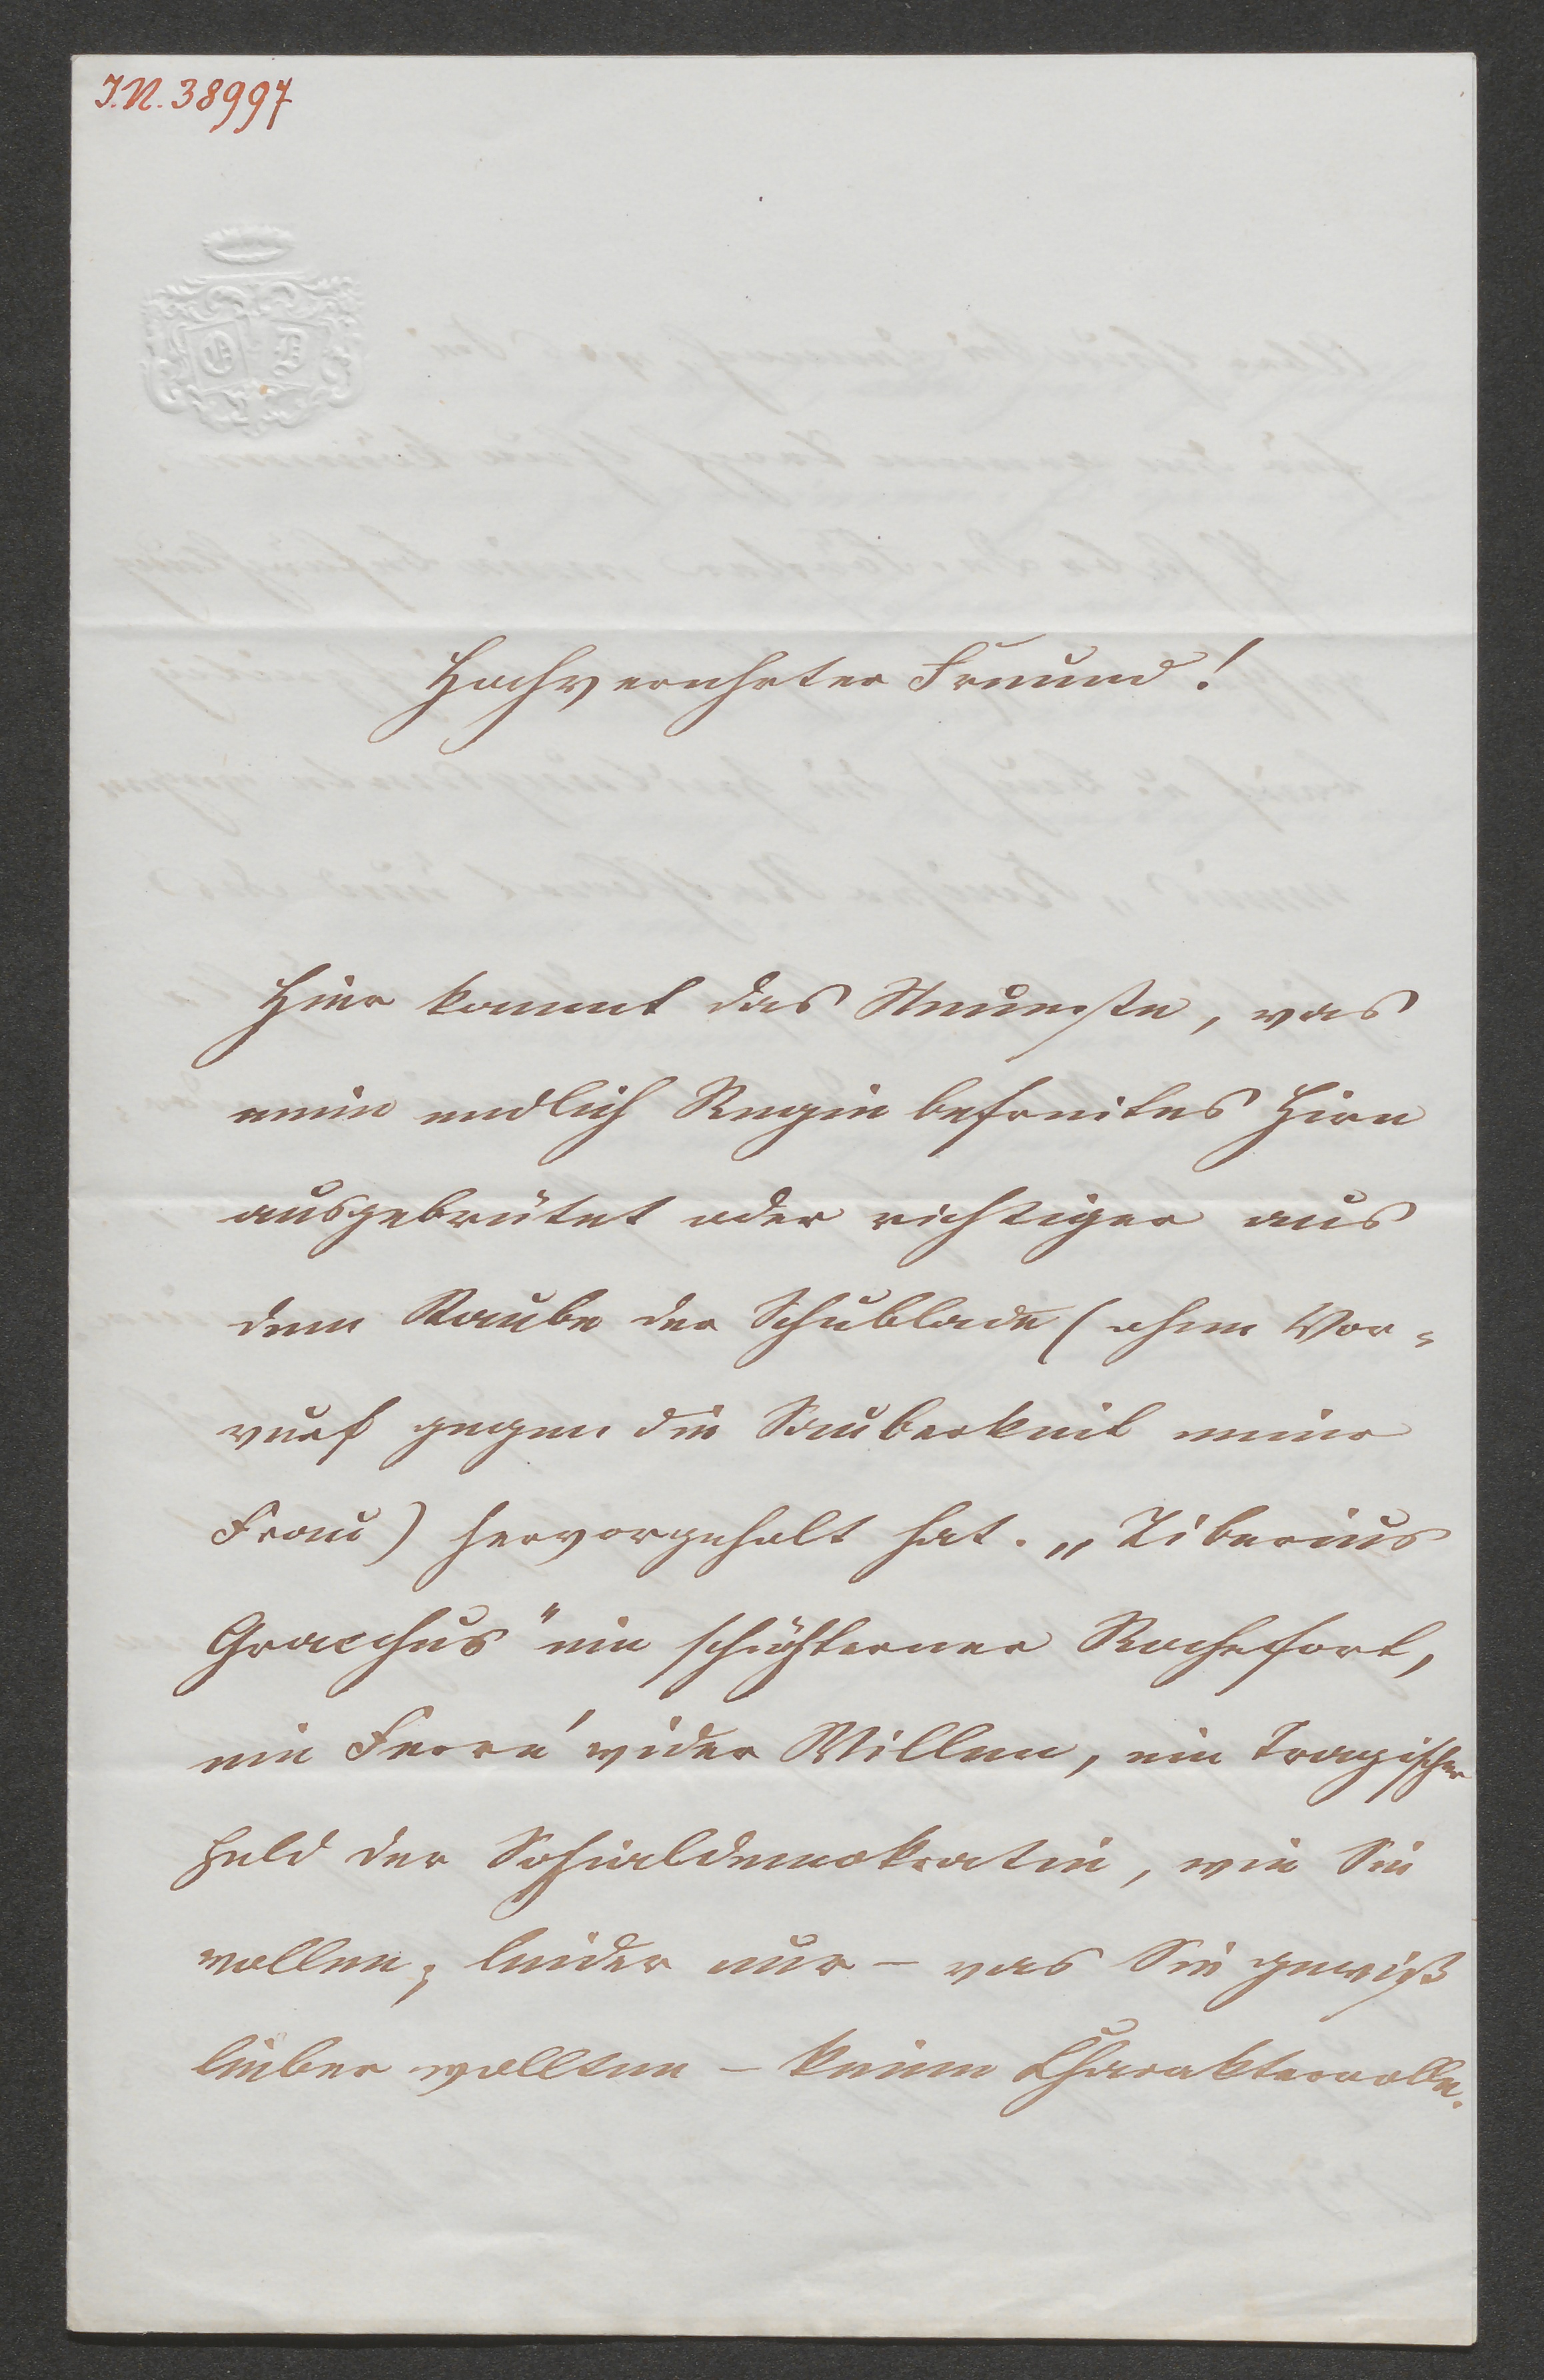 I.N. 38997
O D
Hochverehrter Freund!
Hier kommt das Neueste, was
mein endlich Regie befreites Hirn
ausgebrütet oder richtiger aus
dem Staube der Schublade (ohne Vor-
wurf gegen die Sauberkeit meiner
Frau) hervorgeholt hat. „Tiberius
Gracchus" ein schüchterner Rochefort,
ein Ferré wider Willen, ein tragischer
Held der Sozialdemokratie, wie Sie
wollen; leider nur – was Sie gewiß
lieber wollten – keine Charakterrolle.